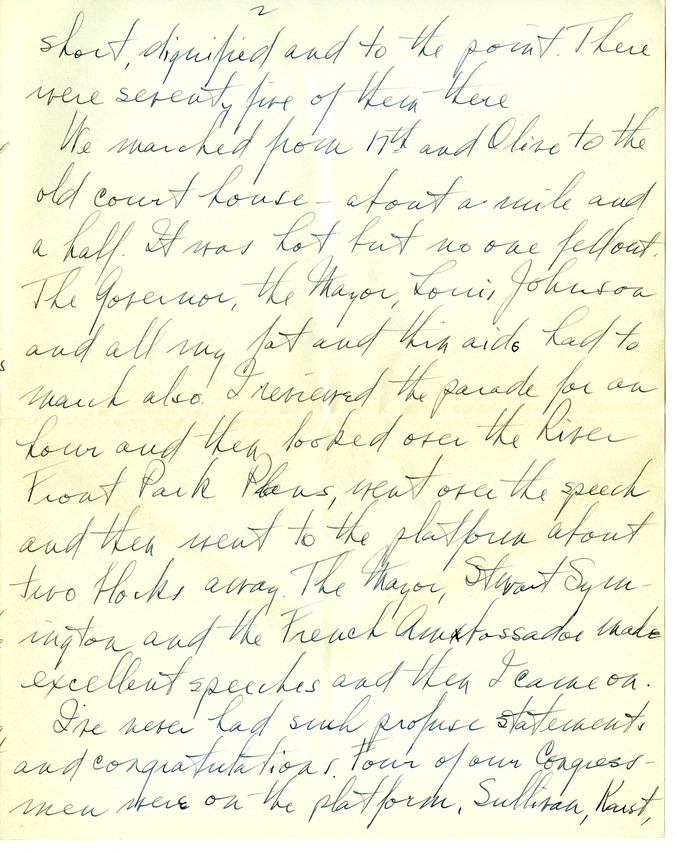 2
short, dignified and to the point. There
were seventy five of them there
We marched from 17th and Olive to the
old court house - about a mile and
a half. It was hot but no one fell out.
The Governor, the Mayor, Louis Johnson
and all my fat and thin aids had to
march also. I reviewed the parade for an
hour and then looked over the River
Front Park Plans, went over the speech
and then went to the platform about
two blocks away. The Mayor, Stuart Sym-
ington and the French Ambassador made
excellent speeches and then I came on.
I've never had such profuse statements
and congratulations. Four of our Congress-
men were on the platform, Sullivan, Karst,